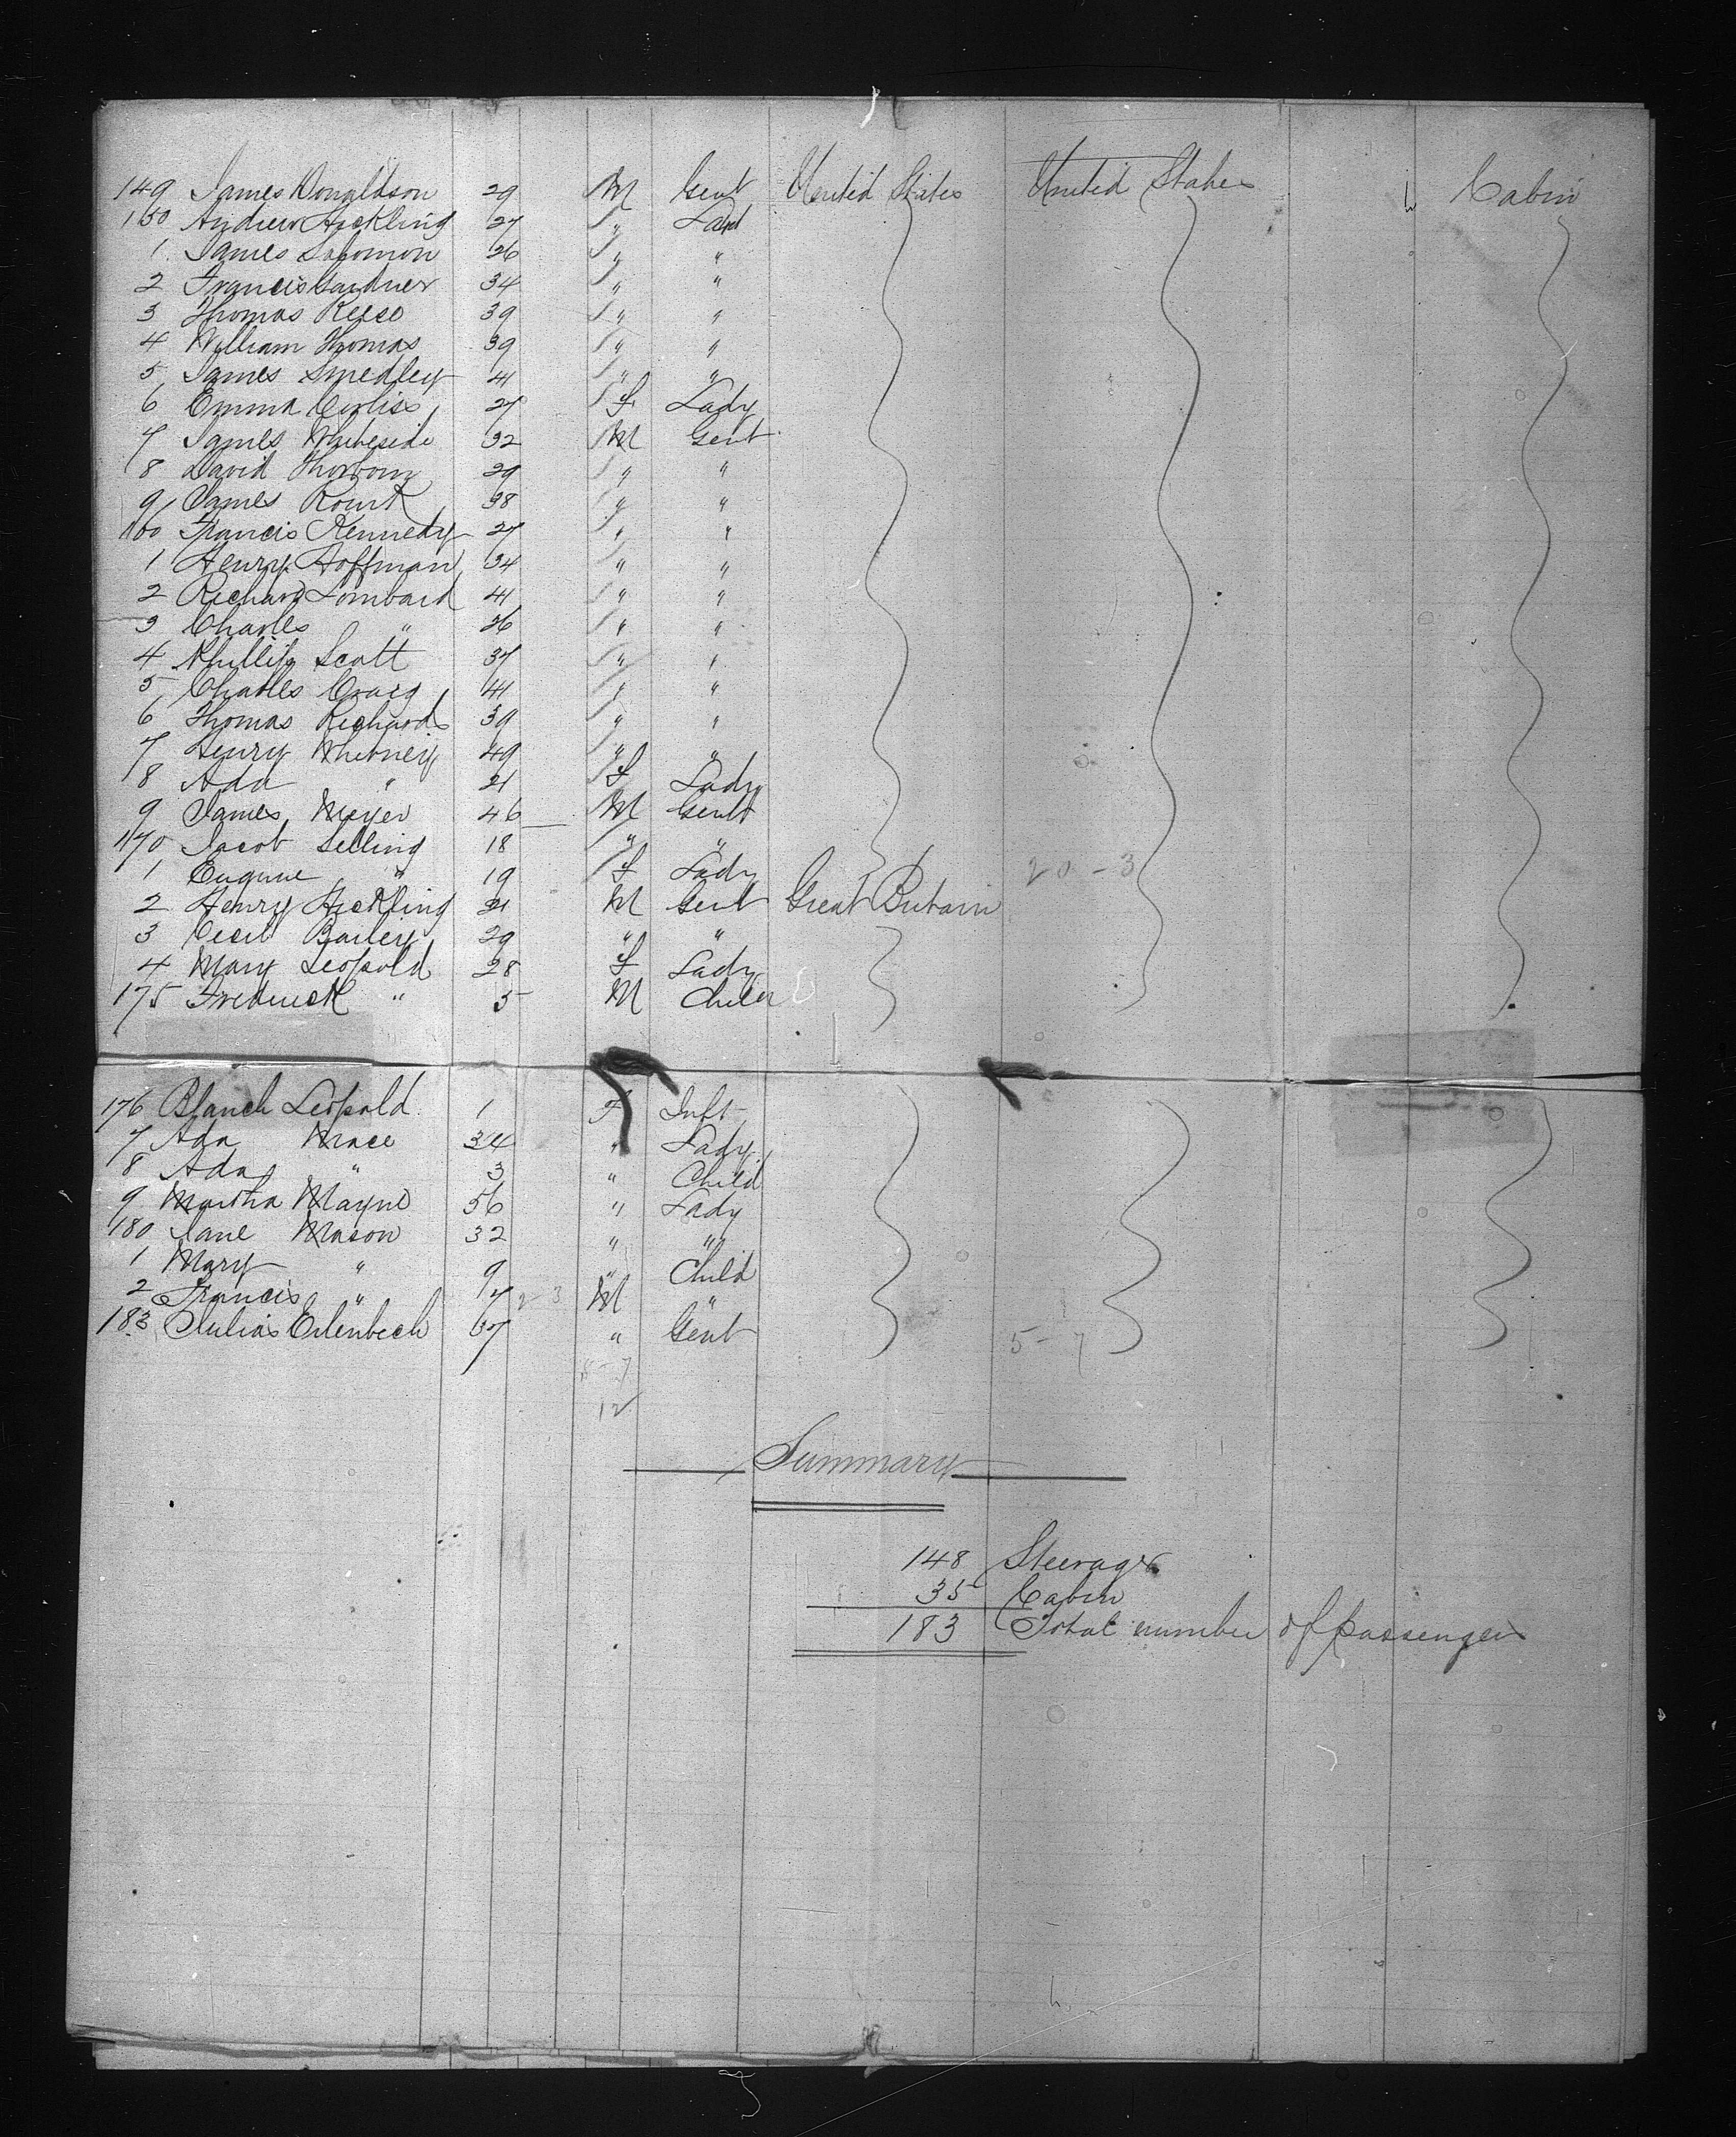 149 James Donaldson 29 M Gent United States United States Cabin
150 Andrew Hickling 27 " "
1 James Solomon 26 " "
2 Francis Gardner 34 " "
3 Thomas Reese 39 " "
4 William Thomas 39 " "
5 James Smedley 41 " "
6 Emma Corliss 27 F Lady
7 James Whiteside 32 M Gent
8 David Thorborn 29 " "
9 James Rourk 38 " "
160 Francis Kennedy 27 " "
1 Henry Hoffman 34 " "
2 Richard Lombard 41 " "
3 Charles " 26 " "
4 Phillip Scott 37 " "
5 Charles Craig 41 " "
6 Thomas Richards 39 " "
7 Henry Whitney 49 " "
8 Ada " 21 F Lady
9 James Meyer 46 M Gent
170 Jacob Selling 18 " "
1 Eugune " 19 F Lady 20 - 3
2 Henry Hickling 31 M Gent Great Britain
3 Cecil Bailey 29 " "
4 Mary Leopold 28 F Lady
175 Frederick " 5 M Child
176 Blanch Leopold 1 F Inft
7 Ada Mace 34 " Lady
8 Ada " 3 " Child
9 Martha Mayne 56 " Lady
180 Jane Mason 32 " "
1 Mary " 9 " Child
2 Francis " 7 2 3 M "
183 Julius Erlenbech 37 " Gent 5 - 7
12
Summary
148 Steerage
35 Cabin
183 Total number of passengers